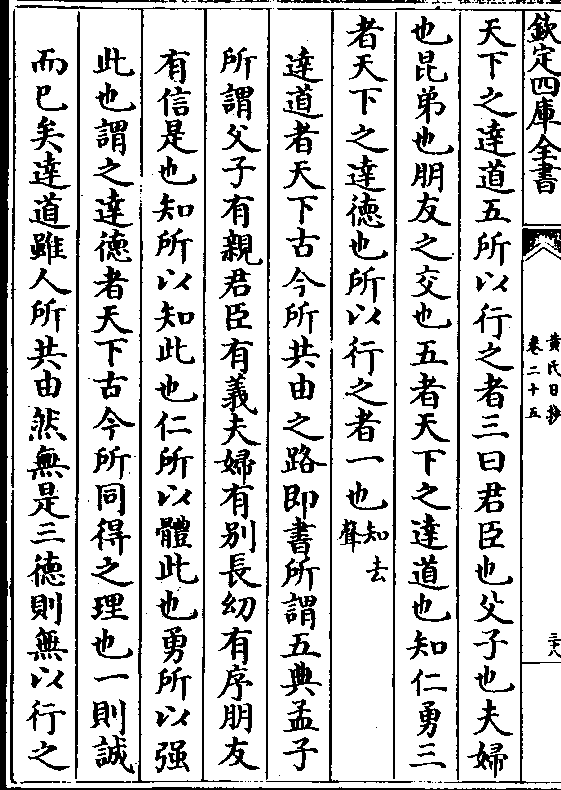 欽定四庫全書
黄氏日抄
卷二十五
三六
天下之達道五所以行之者三曰君臣也父子也夫婦
也昆弟也朋友之交也五者天下之達道也知仁勇三
者天下之達德也所以行之者一也知去
聲
達道者天下古今所共由之路即書所謂五典孟子
所謂父子有親君臣有義夫婦有别長幼有序朋友
有信是也知所以知此也仁所以體此也勇所以强
此也謂之達德者天下古今所同得之理也一則誠
而已矣達道雖人所共由然無是三德則無以行之